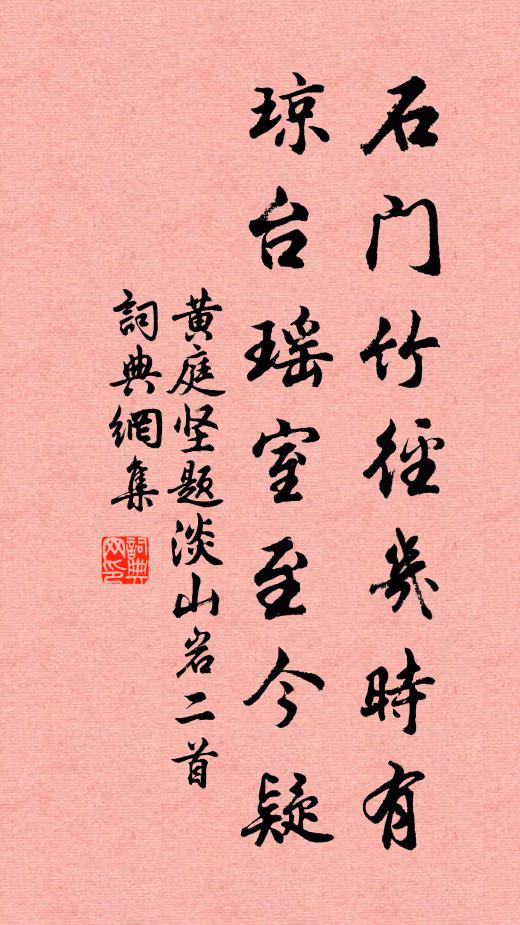 石门竹径幾時有
琼台瑶室至今疑
黄庭坚题淡山岩二首
詞典網集
詞典网印